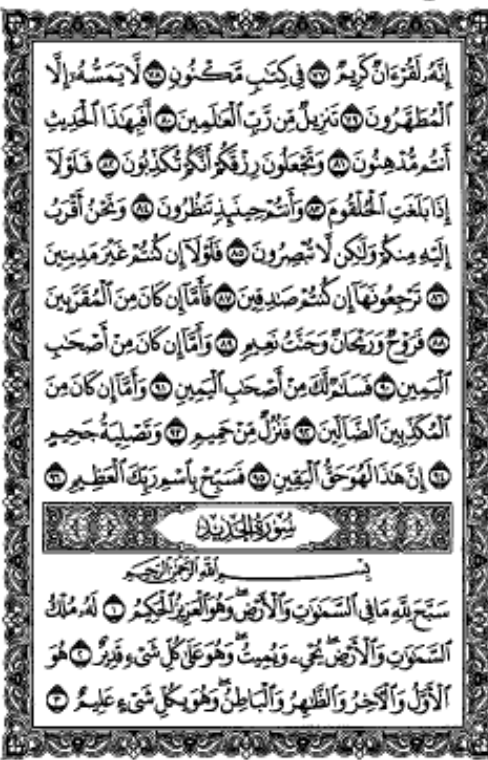 إِنَّهُۥ لَقُرْءَانٌ كَرِيمٌ ٧٧ فِي كِتَٰبٍ مَّكْنُونٍ ٧٨ لَّا يَمَسُّهُۥٓ إِلَّا
ٱلْمُطَهَّرُونَ ٧٩ تَنزِيلٌ مِّن رَّبِّ ٱلْعَٰلَمِينَ ٨٠ أَفَبِهَٰذَا ٱلْحَدِيثِ
أَنتُم مُّدْهِنُونَ ٨١ وَتَجْعَلُونَ رِزْقَكُمْ أَنَّكُمْ تُكَذِّبُونَ ٨٢ فَلَوْلَآ
إِذَا بَلَغَتِ ٱلْحُلْقُومَ ٨٣ وَأَنتُمْ حِينَئِذٍ تَنظُرُونَ ٨٤ وَنَحْنُ أَقْرَبُ
إِلَيْهِ مِنكُمْ وَلَٰكِن لَّا تُبْصِرُونَ ٨٥ فَلَوْلَآ إِن كُنتُمْ غَيْرَ مَدِينِينَ
٨٦ تَرْجِعُونَهَآ إِن كُنتُمْ صَٰدِقِينَ ٨٧ فَأَمَّآ إِن كَانَ مِنَ ٱلْمُقَرَّبِينَ
٨٨ فَرَوْحٌ وَرَيْحَانٌ وَجَنَّتُ نَعِيمٍ ٨٩ وَأَمَّآ إِن كَانَ مِنْ أَصْحَٰبِ
ٱلْيَمِينِ ٩٠ فَسَلَٰمٌ لَّكَ مِنْ أَصْحَٰبِ ٱلْيَمِينِ ٩١ وَأَمَّآ إِن كَانَ مِنَ
ٱلْمُكَذِّبِينَ ٱلضَّآلِّينَ ٩٢ فَنُزُلٌ مِّنْ حَمِيمٍ ٩٣ وَتَصْلِيَةُ جَحِيمٍ
٩٤ إِنَّ هَٰذَا لَهُوَ حَقُّ ٱلْيَقِينِ ٩٥ فَسَبِّحْ بِٱسْمِ رَبِّكَ ٱلْعَظِيمِ ٩٦
سُورَةُ الحَدِيدِ
بِسْمِ ٱللَّهِ ٱلرَّحْمَٰنِ ٱلرَّحِيمِ
سَبَّحَ لِلَّهِ مَا فِي ٱلسَّمَٰوَٰتِ وَٱلْأَرْضِۖ وَهُوَ ٱلْعَزِيزُ ٱلْحَكِيمُ ١ لَهُۥ مُلْكُ
ٱلسَّمَٰوَٰتِ وَٱلْأَرْضِۖ يُحْيِۦ وَيُمِيتُۖ وَهُوَ عَلَىٰ كُلِّ شَيْءٍ قَدِيرٌ ٢ هُوَ
ٱلْأَوَّلُ وَٱلْآخِرُ وَٱلظَّٰهِرُ وَٱلْبَاطِنُۖ وَهُوَ بِكُلِّ شَيْءٍ عَلِيمٌ ٣